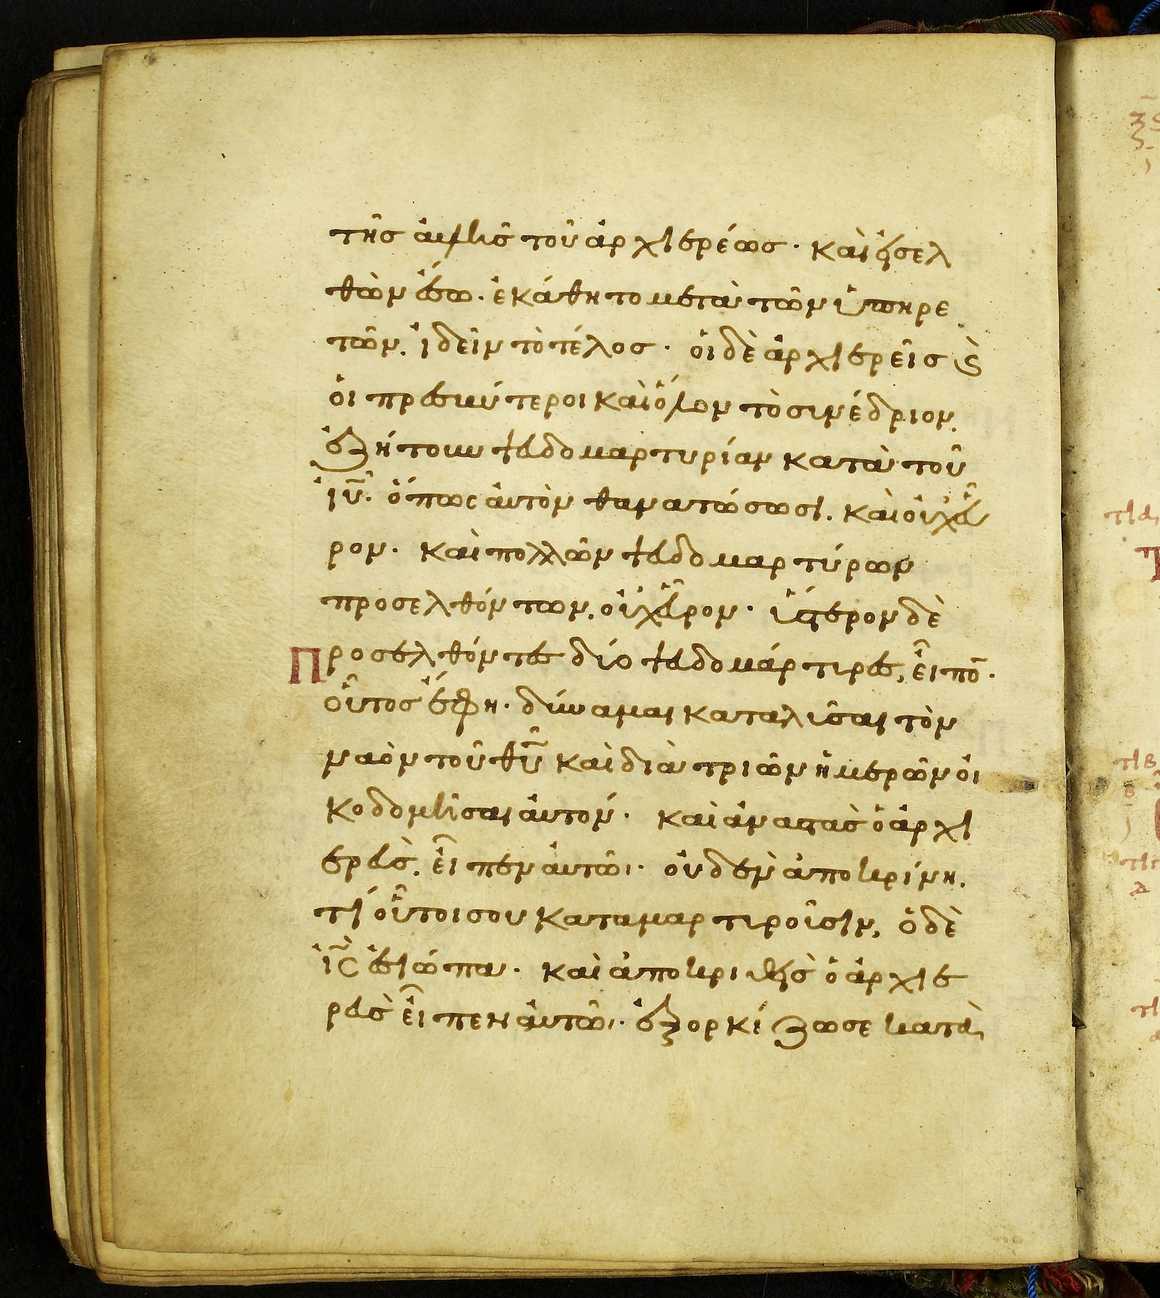 τῆσ ἀυλῆσ τοῦ ἀρχιερέωσ · καὶ εἰσελ
θὼν ἔσω · ἐκάθητο μετὰ τῶν ὑπηρε
τῶν, ἰδεῖν τὸ τέλοσ · ὁι δὲ ἀρχιερεῖσ ϗ
ὁι πρεσβύτεροι καὶ ὅλον τὸ σινέδριον,
ἐζήτουν ψευδομαρτυρίαν κατὰ τοῦ
ἰῦ · ὅπωσ ἀυτὸν θανατώσωσι, καὶ οὐχ εὗ
ρον · καὶ πολλῶν ψευδομαρτύρων
προσελθόντων, οὐχ εὗρον · ὕστερον δὲ
Προσελθόντεσ δύο ψευδομάρτιρεσ, εἶπο̄ ·
οὗτοσ ἔφη · δύναμαι καταλῦσαι τὸν
ναὸν τοῦ θῦ καὶ διὰ τριῶν ἡμερῶν ὀι
κοδομῆσαι ἀυτόν · καὶ ἀναστὰσ ὁ ἀρχι
ερεὺσ, εἶπεν ἀυτῶ · ὀυδὲν ἀποκρίνη,
τί οὗτοι σου καταμαρτιροῦσιν, ὁ δὲ
ἰ̅ς̅ ἐσιώπα · καὶ ἀποκριθεὶσ ὁ ἀρχιε
ρεὺσ εἶπεν ἀυτῶ · ἐξορκίζω σε κατὰ